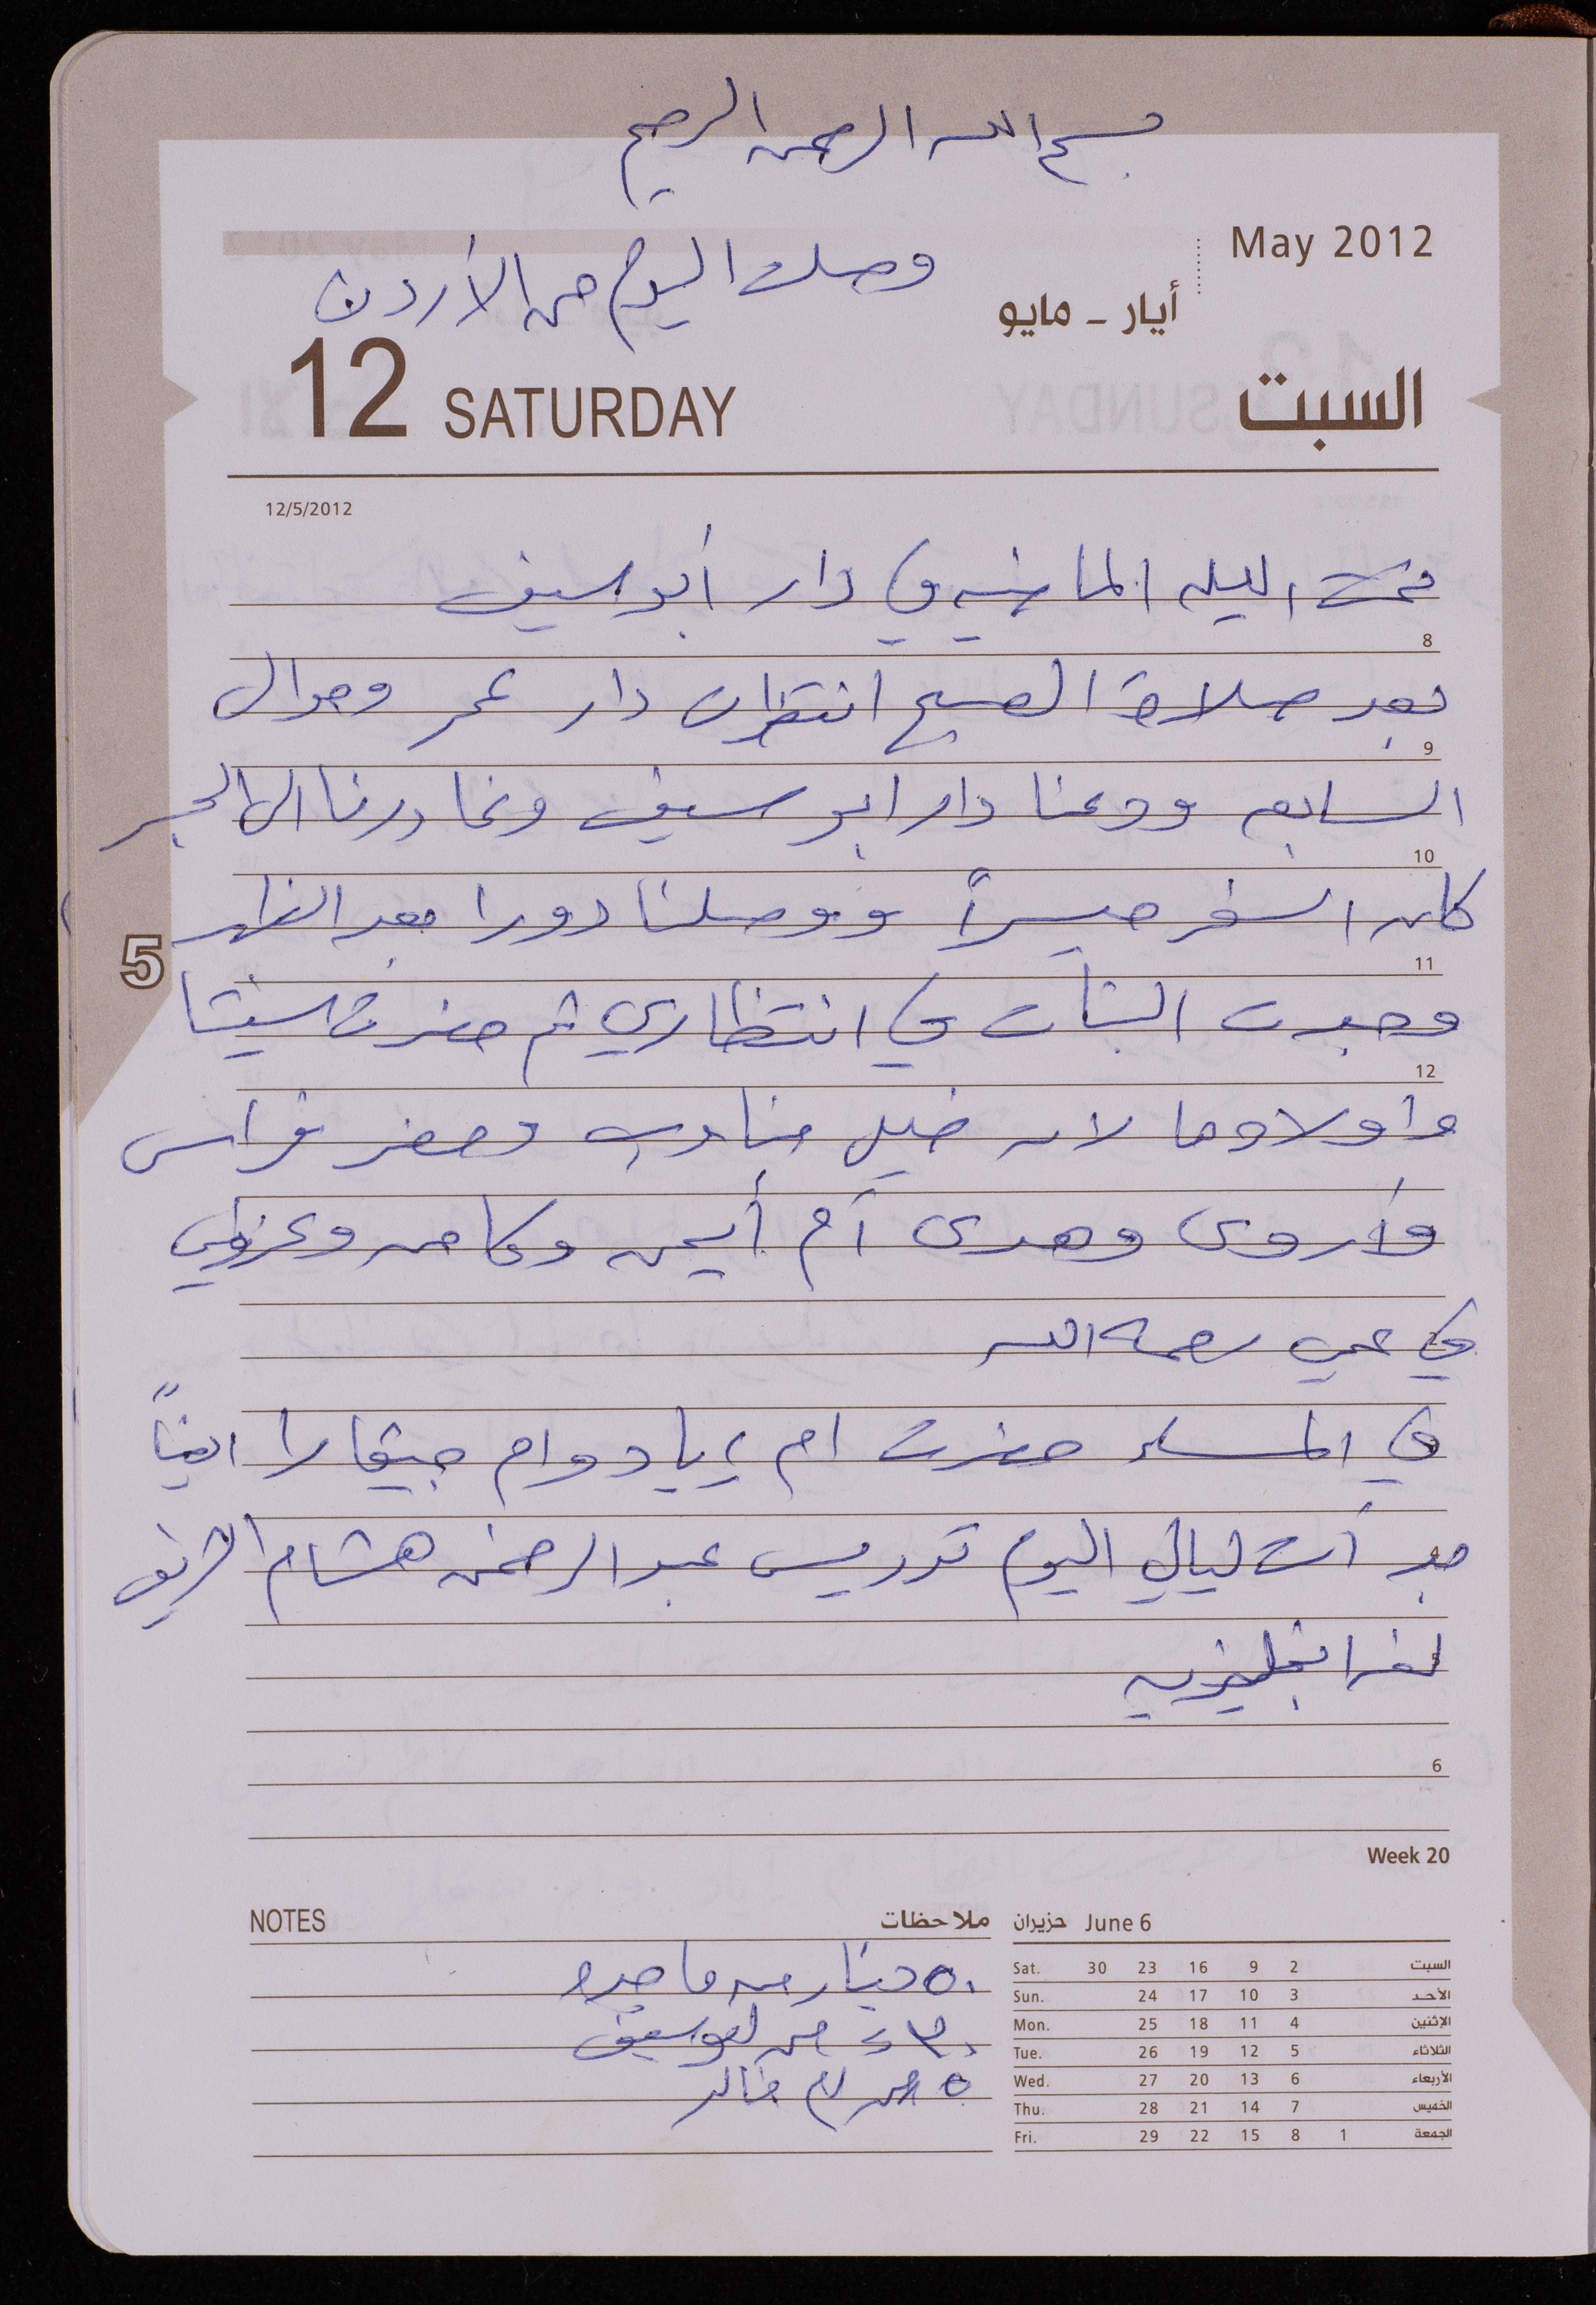 بسم الله الرحمن الرحيم
May 2012
أيار - مايو
وصلت اليوم من الأردن
السبت
12 SATURDAY
12/5/2012
نمت الليله الماضيه في دار أبو سيف
8
بعد صلاة الصبح انتظرت دار عمر وحوال
9
السابعه وودعنا دار ابو سيف وغادرنا الى الجسر
10
كان السفر ميسراً ووصلنا دورا بعد الظهر
11
وجدت البنات في انتظاري ثم حضرت
12
وأولادها لان خليل وحضر فراس
وأروى وهدى أم أيمن وعزوني
في عمي رحمه الله
في المساء حضرت ام اياد وام ايضاً
بدأت ليالي اليوم تدريس عبد الرحمن هشام الشريف
لغه انجليزيه
6
Week 20
NOTES ملاحظات
٥٠ دينار من ماجده
من ابو سيف
من ام خالد
June 6 حزيران
Sat. 30 23 16 9 2 السبت
Sun. 24 17 10 3 الأحد
Mon. 25 18 11 4 الإثنين
Tue. 26 19 12 5 الثلاثاء
Wed. 27 20 13 6 الأربعاء
Thu. 28 21 14 7 الخميس
Fri. 29 22 15 8 1 الجمعة
5